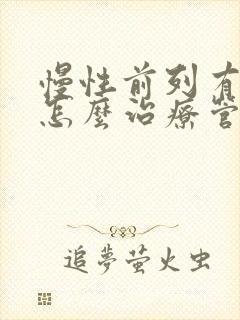 慢性前列有
怎麼治療管
追夢螢火虫